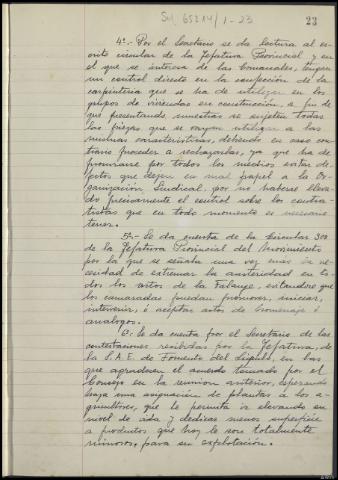 Sig. 65214/1-23
23
4º.- Por el Secretario se da lectura al es-
crito circular de la Jefatura Provincial, y en
el que se interesa de las Comarcales, tengan
un control directo en la confección de la
carpintería que se ha de utilizar en los
grupos de viviendas en construcción, a fin de
que presentando muestras se sujeten todas
las piezas que se vayan utilizar a las
mismas características, debiendo en caso con-
trario proceder a rechazarlas, ya que ha de
procurarse por todos los medios evitar de-
fectos que dejen en mal papel a la Or-
ganización Sindical, por no haberse lleva-
do previamente el control sobre los contra-
tistas que en todo momento es necesario
tener.
5º.- Se da cuenta de la circular 300
de la Jefatura Provincial del Movimiento
por la que se señala una vez mas la ne-
cesidad de extremar la austeridad en to-
dos los actos de la Falange, evitandose que
los camaradas puedan promover, iniciar,
intervenir, ó aceptar actos de homenaje ó
analogos.
6º.- Se da cuenta por el Secretario de las
contestaciones recibidas por la Jefatura, de
la S.A.E. de Fomento del Lúpulo, en las
que agradecen el acuerdo tomado por el
Consejo en la reunion anterior, esperando
haya una asignación de plantas a los a-
gricultores, que le permita ir elevando su
nivel de vida y dedicar menos superficie
a productos que hoy le son totalmente
ruinosos, para su explotación.